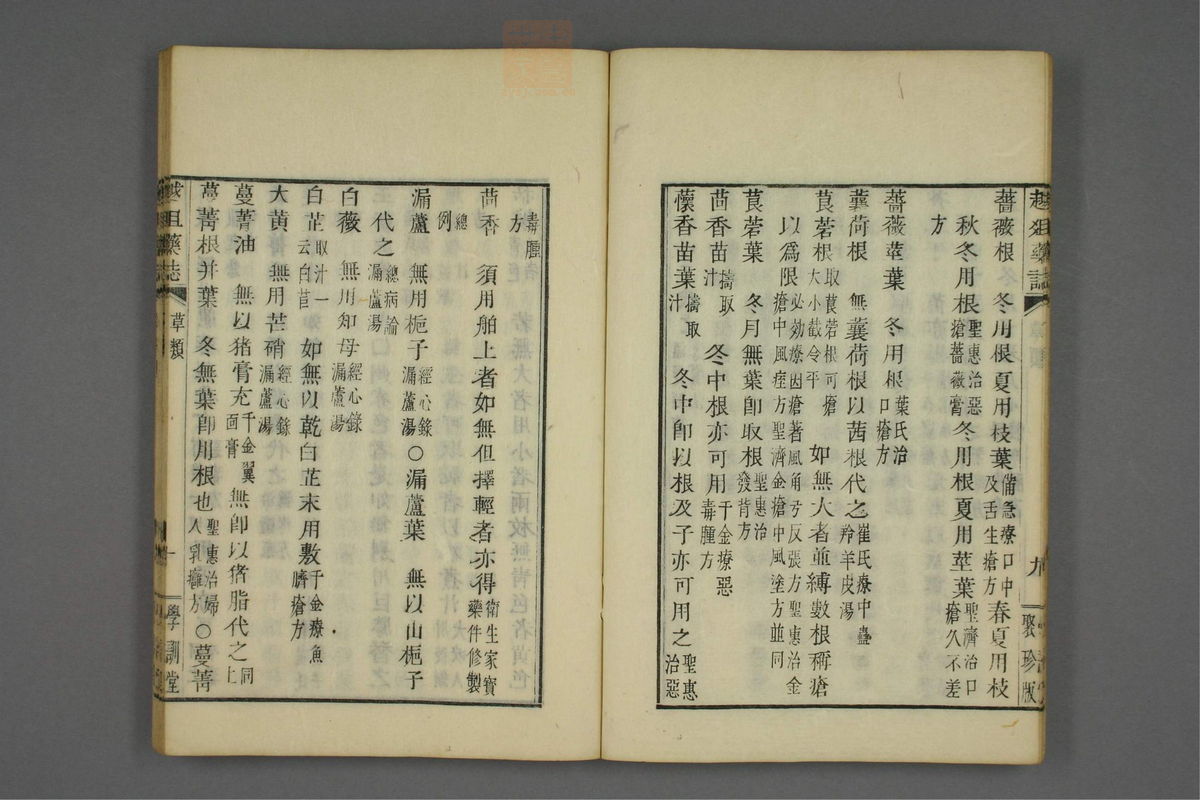 薔薇根　冬用根夏用枝葉備急療口中及舌生瘡方春夏用枝
秋冬用根聖惠治惡瘡薔薇膏冬用根夏用莖葉聖濟治口瘡久不差
方
薔薇莖葉　冬用根葉氏治口瘡方
蘘荷根　無蘘荷根以茜根代之崔氏療中蠱羚羊皮湯
莨菪根取莨菪根可瘡大小截令平　如無大者並縛數根稱瘡
以爲限必効療因瘡著風角弓反張方聖惠治金瘡中風痙方聖濟金瘡中風塗方並同
莨菪葉　冬月無葉卽取根聖惠治發背方
茴香苗擣取汁　冬中根亦可用千金療惡毒腫方
懷香苗葉擣取汁　冬中卽以根及子亦可用之聖惠治惡
聚珍版
毒腫方
茴香　須用舶上者如無但擇輕者亦得衛生家寶藥件修製
總例
漏蘆　無用梔子經心錄漏蘆湯○漏蘆葉　無以山梔子
代之總病論漏蘆湯
白薇　無用知母經心錄漏蘆湯
白芷取汁一云白苣　如無以乾白芷末用敷千金療魚臍瘡方
大黃　無用芒硝經心錄漏蘆湯
蔓菁油　無以猪膏充千金翼面膏無卽以猪脂代之同上
蔓菁根并葉　冬無葉卽用根也聖惠治婦人乳癰方○蔓菁
藥誌　草類
學訓堂